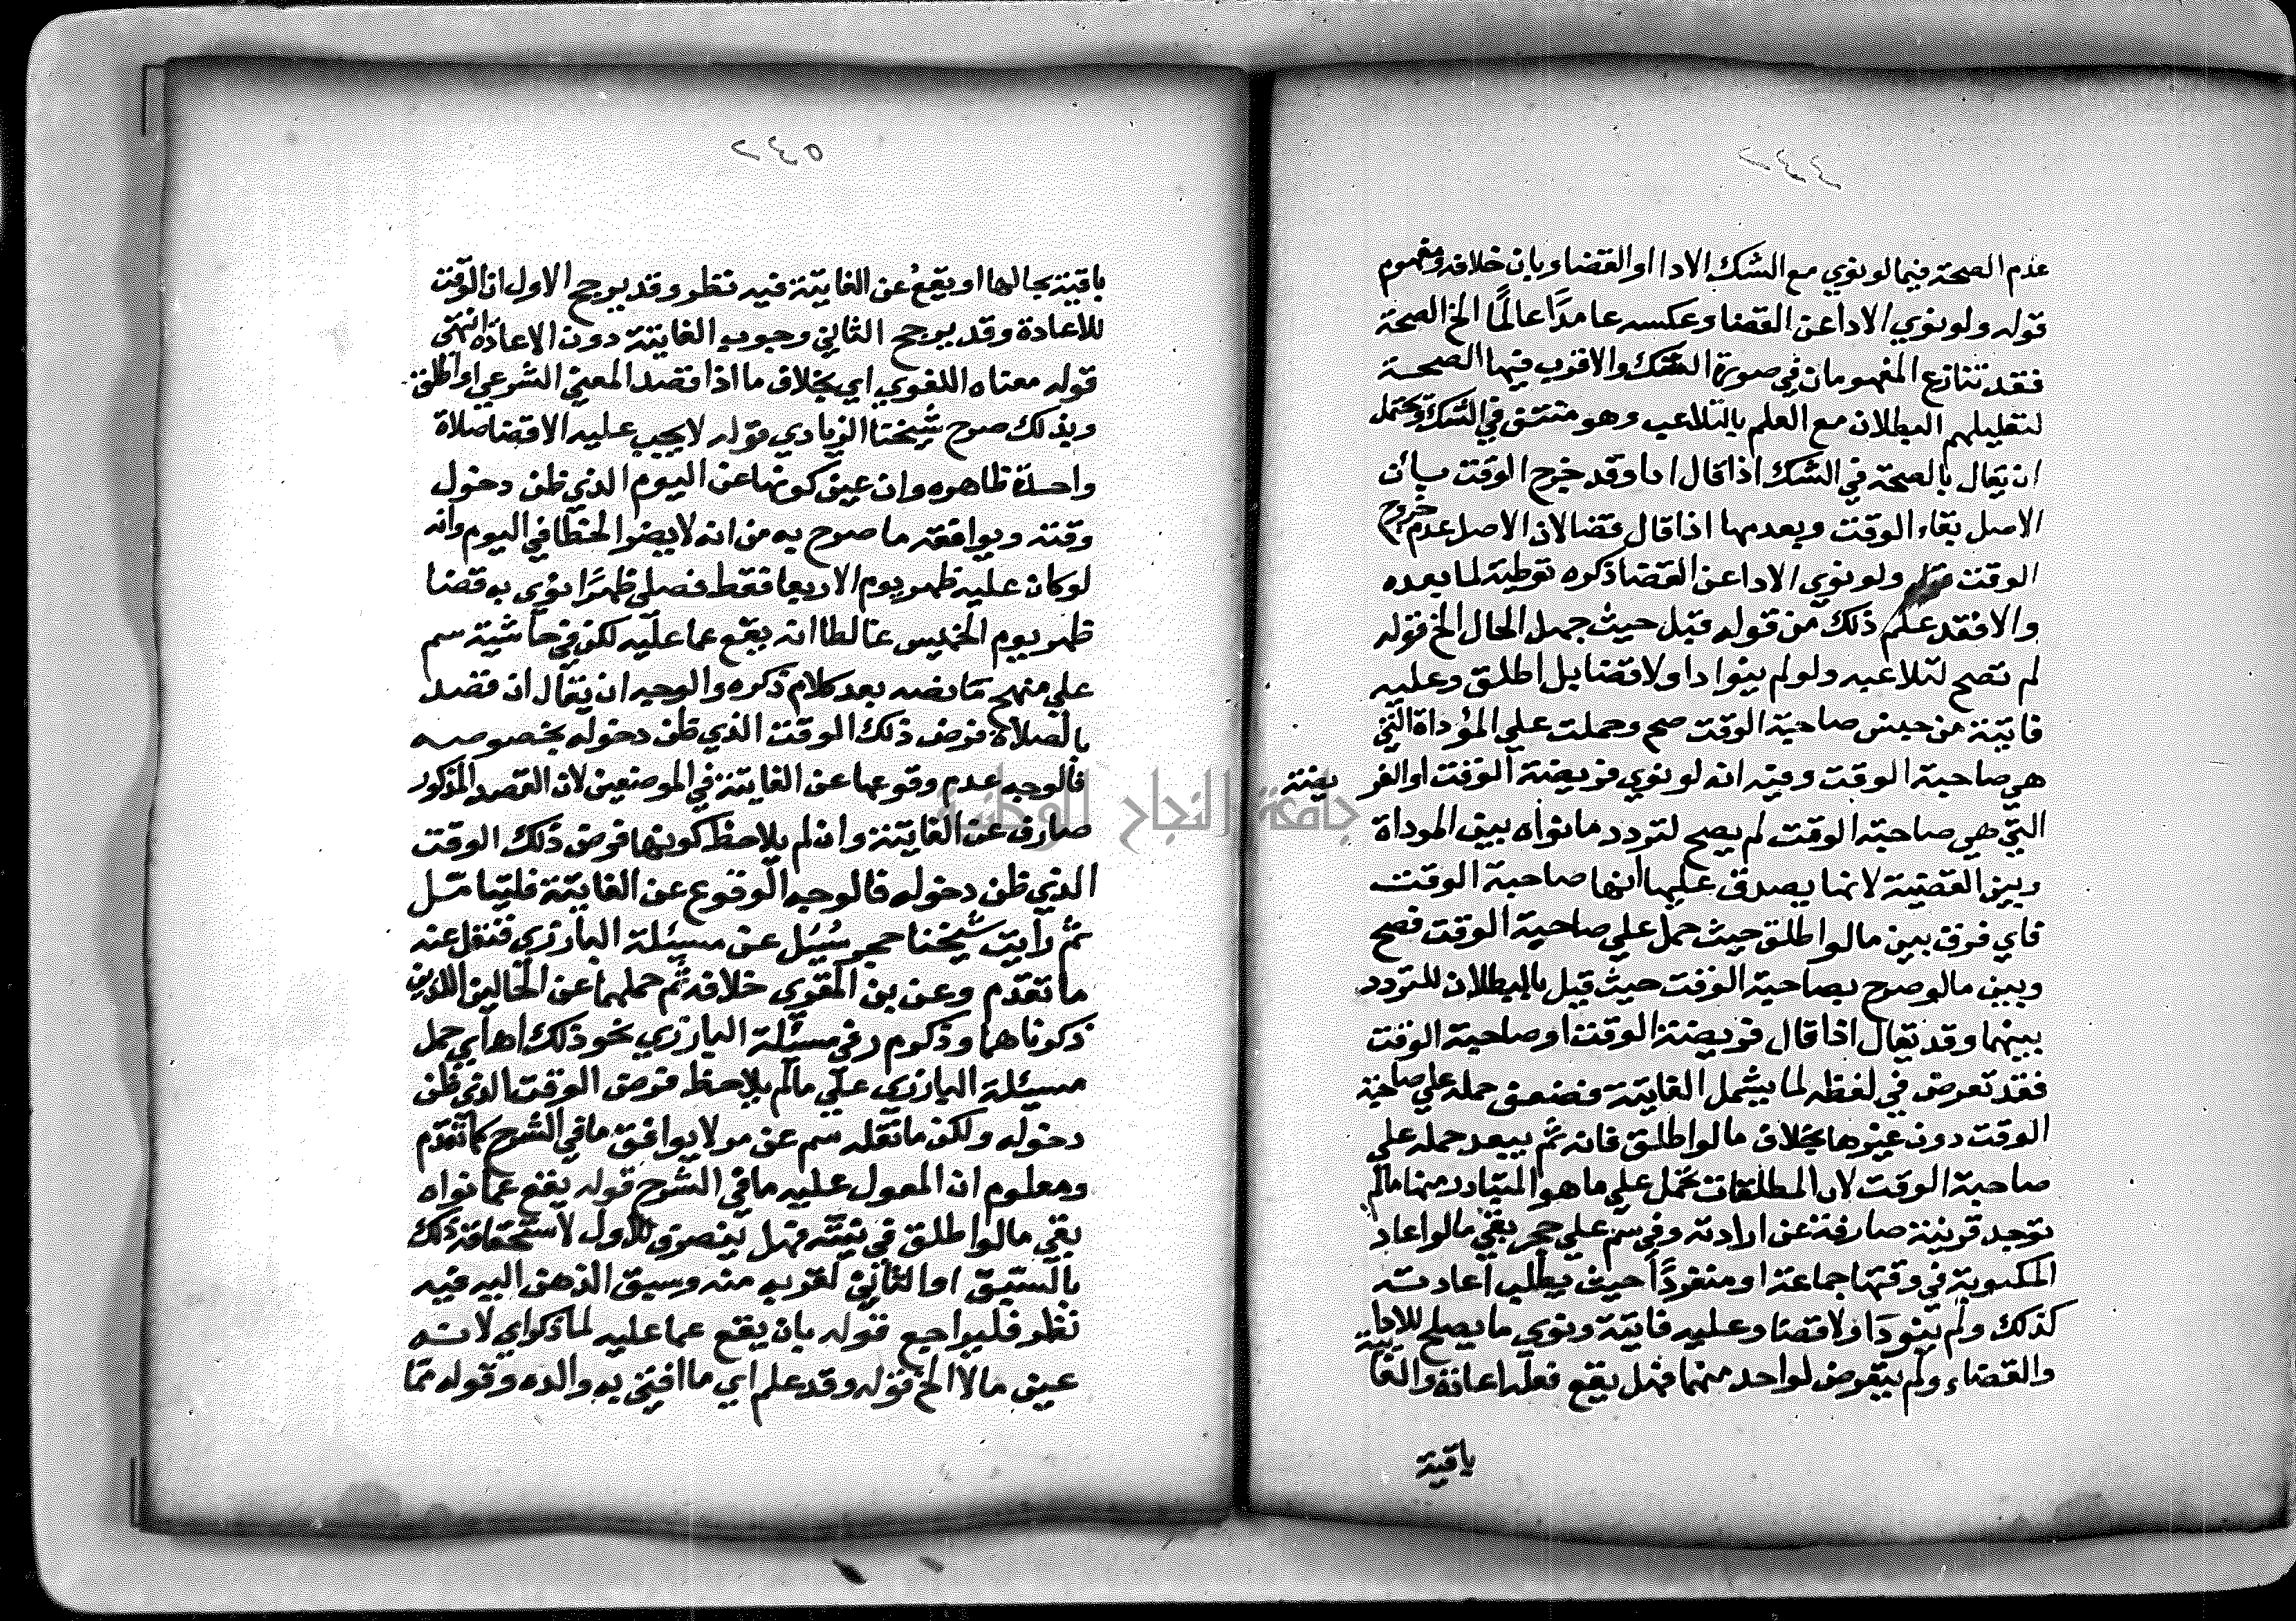 ٢٤٤
عدم الصحة فيما لو نوي مع الشك الادا او القضا وبان خلافه ومفهوم
قوله ولو نوي الادا عن القضا وعكسه عامدًا عالمًا الخ الصحة
فقد تنازع المفهومان في صورة الشك والاقرب فيها الصحة
لتعليلهم البطلان مع العلم بالتلاعب وهو منتف في الشك ويحتمل
ان يقال بالصحة في الشك اذا قال ادا وقد خرج الوقت بان
الاصل بقاء الوقت وبعدمها اذا قال قضا لان الاصل عدم خروج
الوقت قوله ولو نوي الادا عن القضا ذكره توطية لما بعده
والا فقد علم ذلك من قوله قبل حيث جهل الحال الخ قوله
لم تصح لتلاعبه ولو لم ينو ادا ولا قضا بل اطلق وعليه
فايتة من جنس صاحبة الوقت صح وحملت علي المؤداة التي
هي صاحبة الوقت وفيه انه لو نوي فريضة الوقت او الفر يضة
التي هي صاحبة الوقت لم يصح لتردد ما نواه بين الموداة
وبين المقضية لانها يصدق عليها انها صاحبة الوقت
فاي فرق بين ما لو اطلق حيث حمل علي صاحبة الوقت فصح
وبين ما لو صرح بصاحبة الوقت حيث قيل بالبطلان للتردد
بينهما وقد يقال اذا قال فريضة الوقت او صاحبة الوقت
فقد تعرض في لفظه لما يشمل الفايتة فضعف حمله علي صاحبة
الوقت دون غيرها بخلاف ما لو اطلق فانه لم يبعد حمله علي
صاحبة الوقت لان المطلقات تحمل علي ما هو المتبادر منها ما لم
توجد قرينة صارفة عن ارادته وفي سم علي حجر بقي ما لو اعاد
المكتوبة في وقتها جماعة او منفردًا حيث يطلب اعادته
كذلك ولم ينو ادا ولا قضا وعليه فايتة ونوي ما يصلح للادا
والقضاء ولم يتعرض لواحد منهما فهل يقع فعله اعادة والفا يتة
باقية
٢٤٥
باقية بحالها او يقع عن الفايتة فيه نظر وقد يرجح الاول ان الوقت
للاعادة وقد يرجح الثاني وجوب الفايتة دون الاعادة انتهى
قوله معناه اللغوي اي بخلاف ما اذا قصد المعني الشرعي او اطلق
وبذلك صرح شيخنا الزيادي قوله لا يجب عليه الا قضا صلاة
واحدة ظاهره وان عين كونها عن اليوم الذي ظن دخول
وقته ويوافقه ما صرح به من انه لا يضر الخطا في اليوم وانه
لو كان عليه ظهر يوم الاربعا فقط فصلي ظهرًا نوي به قضا
ظهر يوم الخميس غالطا انه يقع عما عليه لكن في حاشية سم
علي منهج ما نصه بعد كلام ذكره والوجه ان يقال ان قصد
بالصلاة فرض ذلك الوقت الذي ظن دخوله بخصوصه
فالوجه عدم وقوعها عن الفايتة في الموضعين لان القصد المذكور
صارف عن الفايتة وان لم يلاحظ كونها فرض ذلك الوقت
الذي ظن دخوله فالوجه الوقوع عن الفايتة فليتامل
ثم رأيت شيخنا حجر سُئل عن مسئلة البارزي فنقل عنه
ما تقدم وعن بن المقري خلافه ثم حملهما عن الحالين اللذين
ذكرناهما وذكر م ر في مسئلة البارزي نحو ذلك اه اي حمل
مسئلة البارزي علي ما لم يلاحظ فرض الوقت الذي ظن
دخوله ولكن ما نقله سم عن م ر لا يوافق ما في الشرح كما تقدم
ومعلوم ان المعول عليه ما في الشرح قوله يقع عما نواه
بقي ما لو اطلق في نيته فهل ينصرف للاول لاستحقاقه ذلك
بالسبق او الثاني لقربه منه وسبق الذهن اليه فيه
نظر فليراجع قوله بان يقع عما عليه لما ذكر اي لانه
عين ما لا الخ قوله وقد علم اي ما افتي به والده وقوله مما